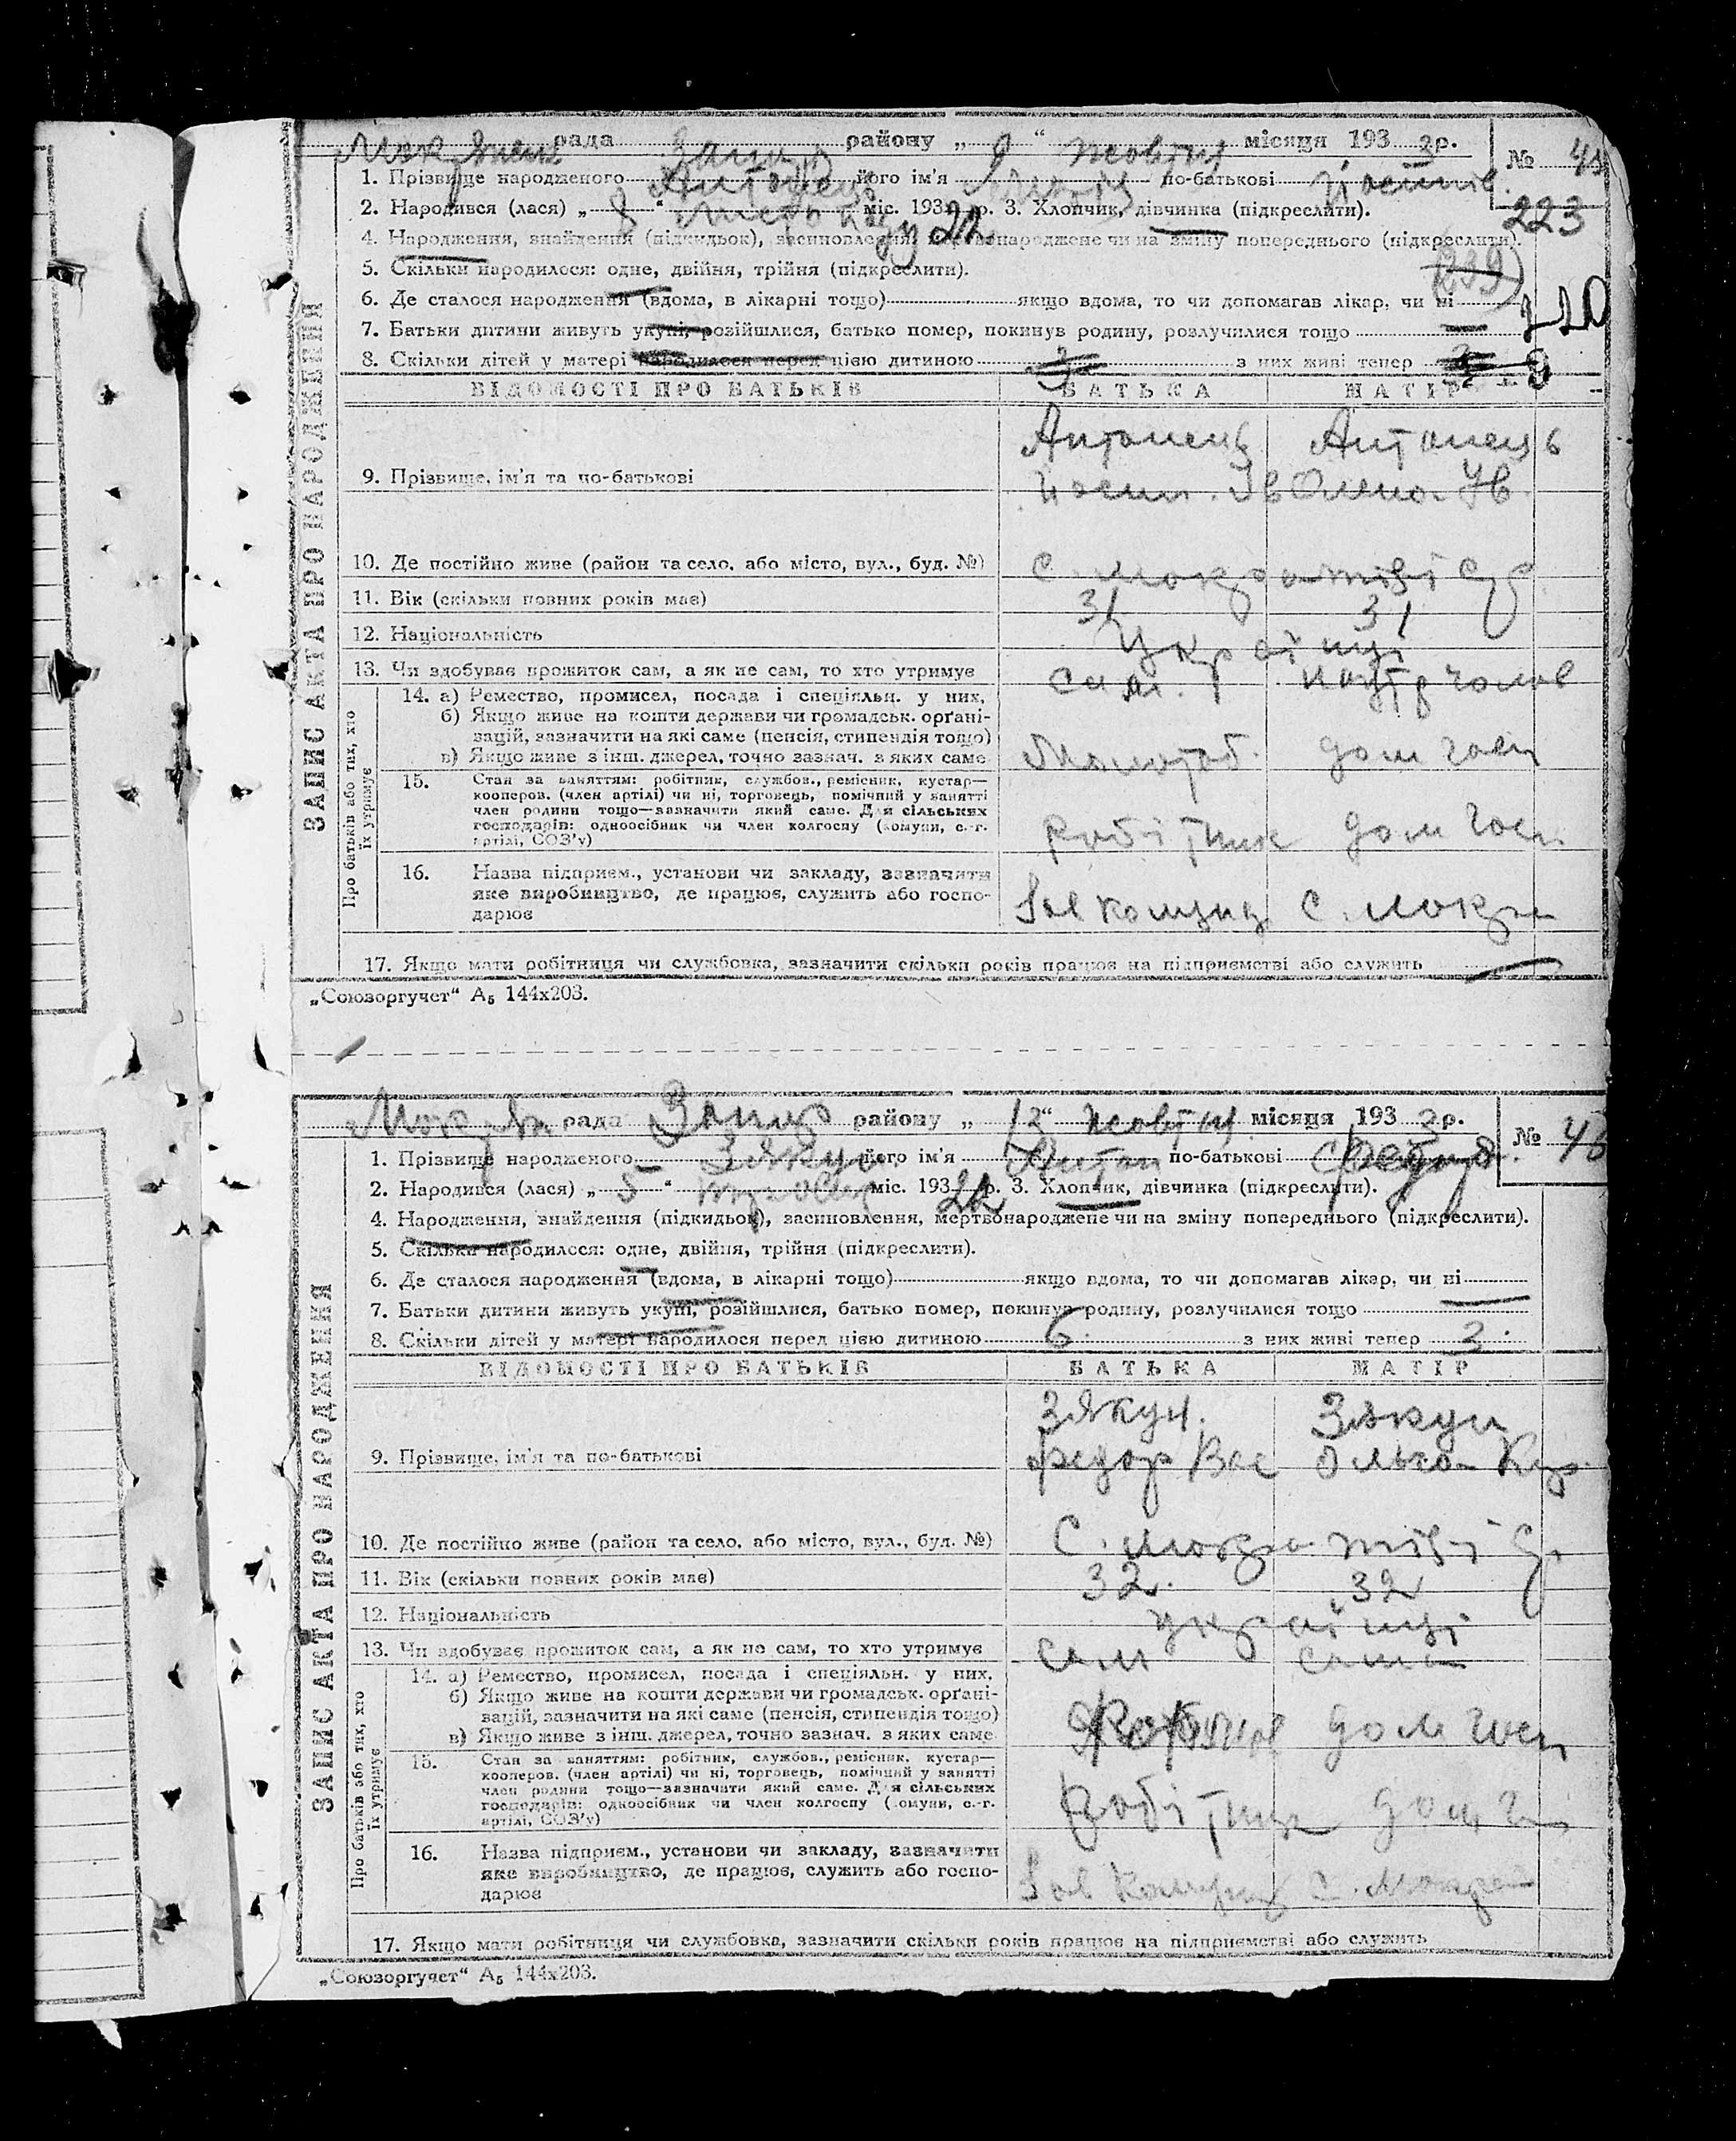 рада району „ 9 “ жовтня місяця 193 3 р.
№ 45
1. Прізвище народженого Антонець його ім'я по-батькові
223
2. Народився (лася) „ 8 “ міс. 193 22 р. 3. Хлопчик, дівчинка (підкреслити).
4. Народження, знайдення (підкидьок), засиновлення, мертвонароджене чи на зміну попереднього (підкреслити).
(239)
5. Скільки народилося: одне, двійня, трійня (підкреслити).
6. Де сталося народження (вдома, в лікарні тощо) якщо вдома, то чи допомагав лікар, чи ні
220
7. Батьки дитини живуть укупі, розійшлися, батько помер, покинув родину, розлучилися тощо
8. Скільки дітей у матері народилося перед цією дитиною з них живі тепер
9
ВІДОМОСТІ ПРО БАТЬКІВ БАТЬКА МАТІР
ЗАПИС АКТА ПРО НАРОДЖЕННЯ
Антонець Антонець
9. Прізвище, ім'я та по-батькові Йосип. Ів Олена Ів.
10. Де постійно живе (район та село, або місто, вул., буд. №) С. Мокра
11. Вік (скільки повних років має) 31 31
12. Національність Українці
13. Чи здобуває прожиток сам, а як не сам, то хто утримує Сам. чолов
Про батьків або тих, хто їх утримує
14. а) Ремество, промисел, посада і спеціяльн. у них.
б) Якщо живе на кошти держави чи громадськ. орґані-
зацій, зазначити на які саме (пенсія, стипендія тощо)
в) Якщо живе з інш. джерел, точно зазнач. з яких саме Молотоб. дом госп
15. Стан за заняттям: робітник, службов., ремісник, кустар—
кооперов. (член артілі) чи ні, торговець, помічний у занятті
член родини тощо—зазначити який саме. Для сільських
господарів: одноосібник чи член колгоспу (комуни, с.-г.
артілі, СОЗ'у) Робітник дом госп.
16. Назва підприєм., установи чи закладу, зазначити
яке виробництво, де працює, служить або госпо-
дарює Зав Комунар С. Мокра
17. Якщо мати робітниця чи службовка, зазначити скільки років працює на підприємстві або служить
„Союзоргучет“ А₅ 144х203.
рада Запор району „ 13 “ жовтня місяця 193 3 р.
№ 46
1. Прізвище народженого Зякун його ім'я Антон по-батькові Федор.
2. Народився (лася) „ 5 “ міс. 193 22 р. 3. Хлопчик, дівчинка (підкреслити).
4. Народження, знайдення (підкидьок), засиновлення, мертвонароджене чи на зміну попереднього (підкреслити).
5. Скільки народилося: одне, двійня, трійня (підкреслити).
6. Де сталося народження (вдома, в лікарні тощо) якщо вдома, то чи допомагав лікар, чи ні
7. Батьки дитини живуть укупі, розійшлися, батько помер, покинув родину, розлучилися тощо
8. Скільки дітей у матері народилося перед цією дитиною 6. з них живі тепер 3.
ВІДОМОСТІ ПРО БАТЬКІВ БАТЬКА МАТІР
ЗАПИС АКТА ПРО НАРОДЖЕННЯ
Зякун. Зякун
9. Прізвище, ім'я та по-батькові Федор Вас Олька
10. Де постійно живе (район та село, або місто, вул., буд. №) С. Мокра
11. Вік (скільки повних років має) 32. 32
12. Національність Українці
13. Чи здобуває прожиток сам, а як не сам, то хто утримує Сам Сама
Про батьків або тих, хто їх утримує
14. а) Ремество, промисел, посада і спеціяльн. у них.
б) Якщо живе на кошти держави чи громадськ. орґані-
зацій, зазначити на які саме (пенсія, стипендія тощо)
в) Якщо живе з інш. джерел, точно зазнач. з яких саме дом госп
15. Стан за заняттям: робітник, службов., ремісник, кустар—
кооперов. (член артілі) чи ні, торговець, помічний у занятті
член родини тощо—зазначити який саме. Для сільських
господарів: одноосібник чи член колгоспу (комуни, с.-г.
артілі, СОЗ'у) Робітник дом
16. Назва підприєм., установи чи закладу, зазначити
яке виробництво, де працює, служить або госпо-
дарює Зав Комунар С. Мокра
17. Якщо мати робітниця чи службовка, зазначити скільки років працює на підприємстві або служить
„Союзоргучет“ А₅ 144х203.